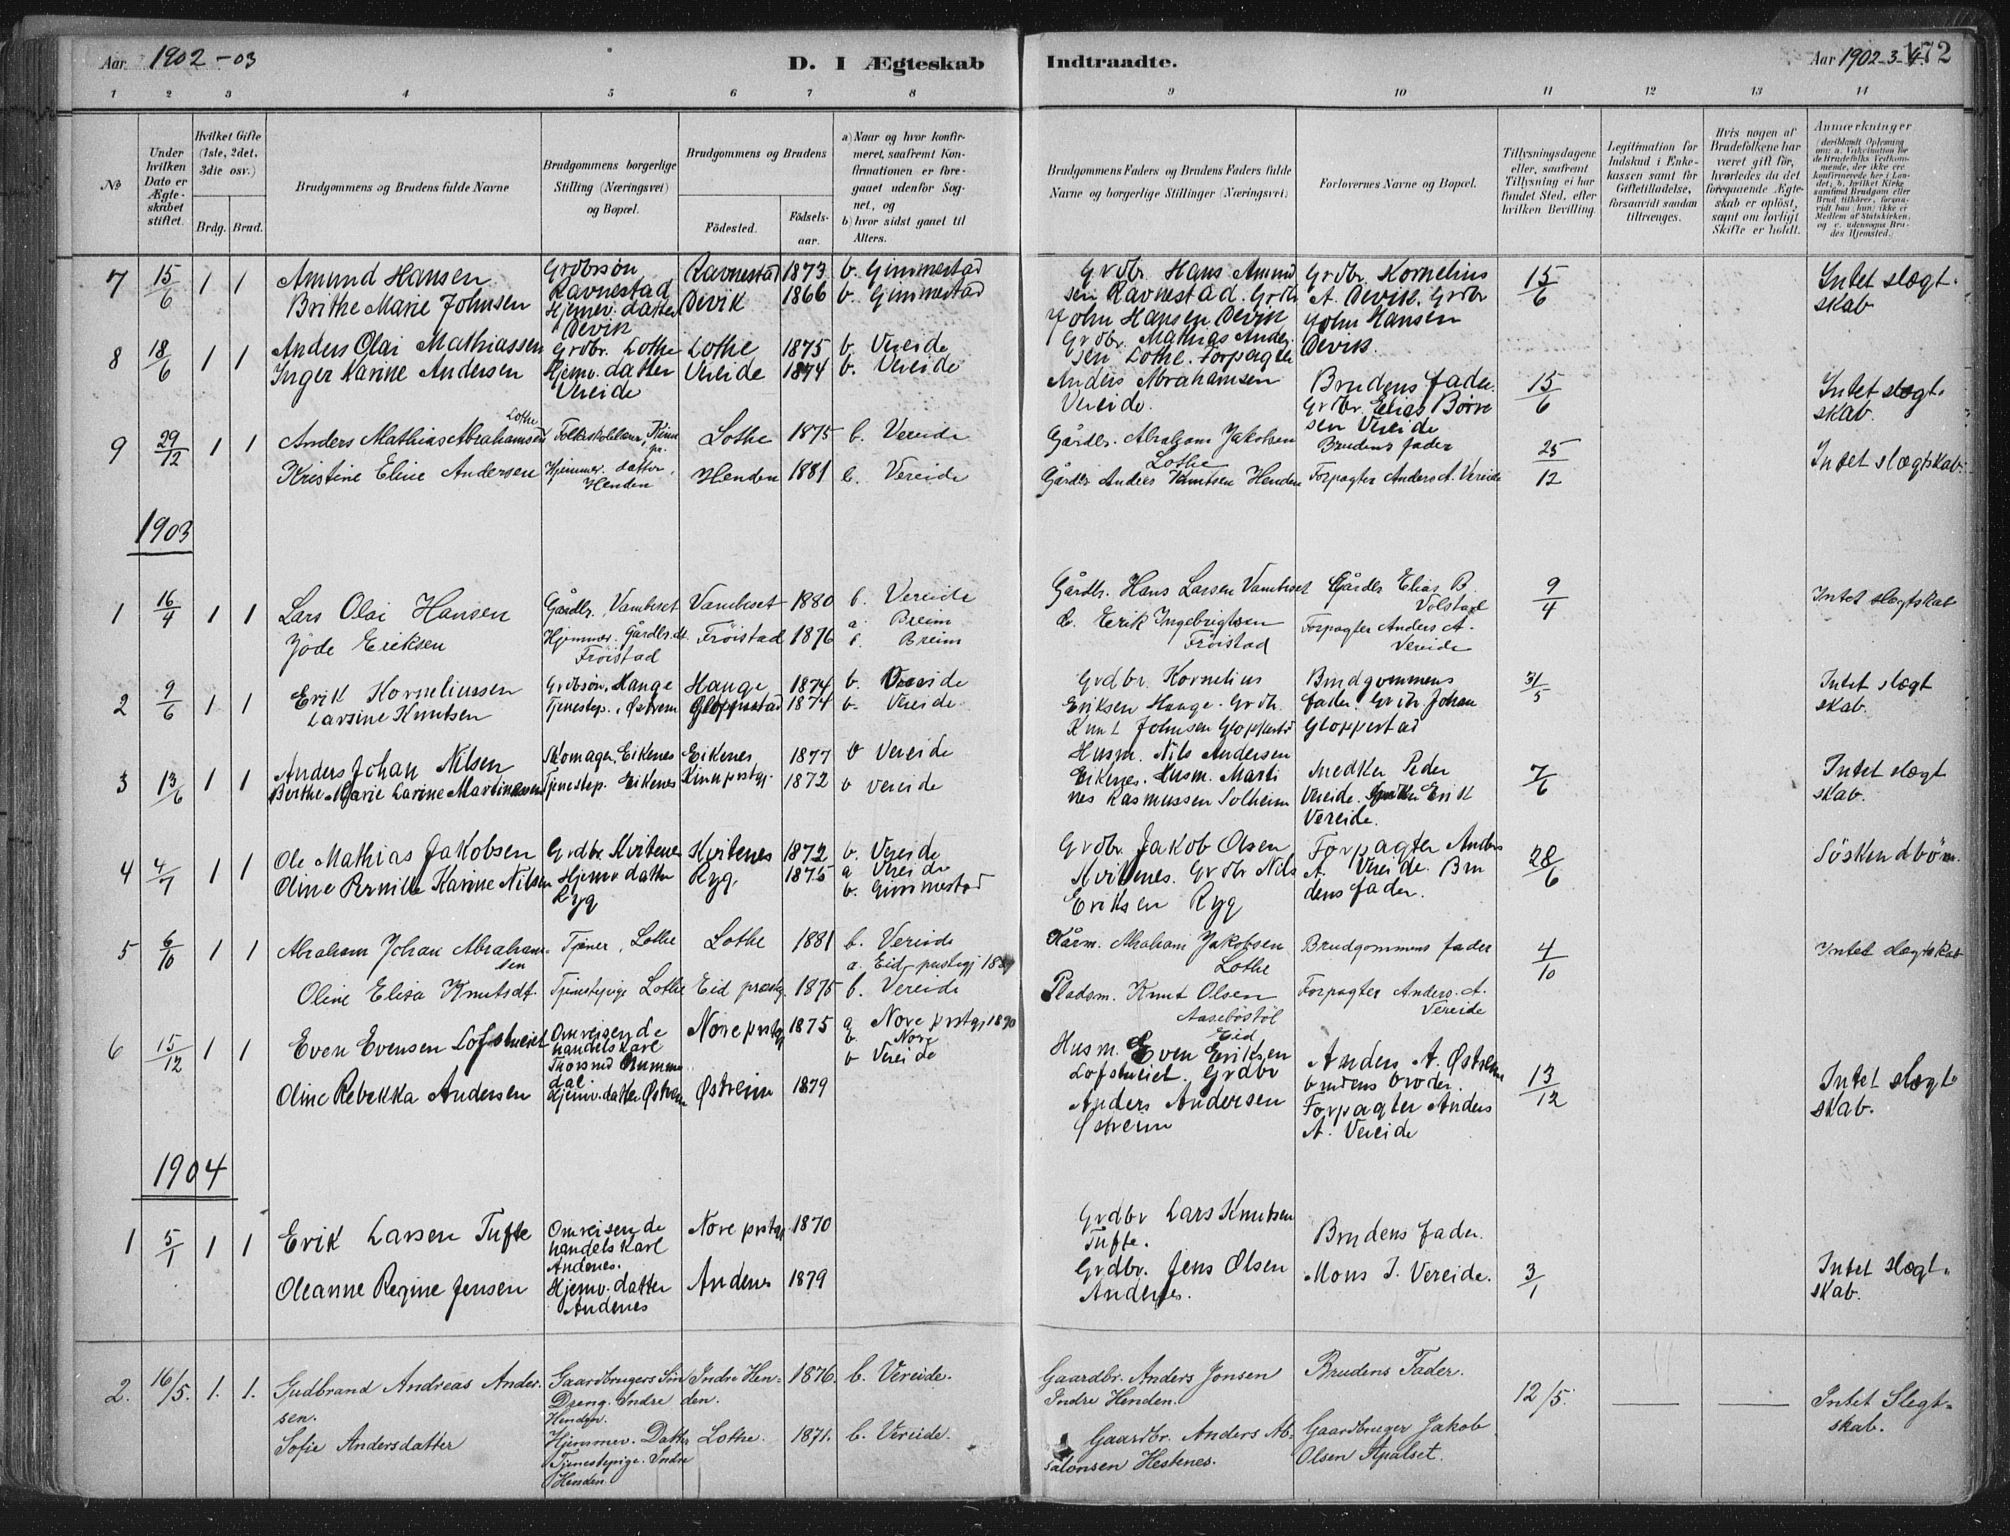 Aar 1902-03
D. I Ægteskab Indtraadte.
Aar 1902-3-4. 172
1 2 3 4 5 6 7 8 9 10 11 12 13 14
№
Under hvilken Dato er Ægteskabet stiftet.
Hvilket Gifte (1ste, 2det, 3die osv.)
Brdg. Brud.
Brudgommens og Brudens fulde Navne
Brudgommens borgerlige Stilling (Næringsvei) og Bopæl.
Brudgommens og Brudens
Födested. Födselsaar.
a) Naar og hvor konfirmeret, saafremt Konfirmationen er foregaaet udenför Sognet, og
b) hvor sidst gaaet til Alters.
Brudgommens Faders og Brudens Faders fulde Navne og borgerlige Stillinger (Næringsvei)
Forlovernes Navne og Bopæl.
Tillysningsdagene eller, saafremt Tillysning ei har fundet Sted, efter hvilken Bevilling.
Legitimation for Indskud i Enkekassen samt for Giftetilladelse, forsaavidt saadan tiltrænges.
Hvis nogen af Brudefolkene har været gift för, hvorledes da det foregaaende Ægteskab er oplöst, samt om lovligt Skifte er holdt.
Anmærkninger
7 15/6 1 1 Amund Hansen Grdbrsøn Ravnestad Ravnestad 1873 b. Gimmestad
Brithe Marie Johnsen Hjemv. datter Devik Devik 1866 b. Gimmestad
Grdbr. Hans Amundsen Ravnestad. Grdbr John Hansen Devik
Grdbr. Kornelius A. Devik. Grdbr John Hansen Devik.
15/6 Intet slægtskab
8 18/6 1 1 Anders Olai Mathiassen Grdbr. Lothe Lothe 1875 b. Vereide
Inger Karine Andersen Hjemv. datter Vereide Vereide 1874 b. Vereide
Grdbr. Mathias Andersen Lothe. Forpagter Anders Abrahamsen Vereide.
Brudens fader. Grdbr. Elias Børresen Vereide
15/6 Intet slægtskab
9 29/12 1 1 Anders Mathias Abrahamsen Lothe Folkeskolelærer, Kinn pr. Lothe 1875 b. Vereide
Kristine Eline Andersen Hjemmev. datter, Henden Henden 1881 b. Vereide
Gårdbr. Abraham Jakobsen Lothe Brudens fader
Gårdbr Anders Knutsen Henden Forpagter Anders A. Vereide
25/12 Intet slægtskab.
1903
1 16/4 1 1 Lars Olai Hansen Gårdbr. Vambeset Vambeset 1880 b. Vereide
Jöde Eriksen Hjemmev. Gårdbr.dt. Fröistad Fröistad 1876 a. Breim b. Breim
Gårdbr. Hans Larsen Vambeset Gårdbr Elias B. Volstad
Erik Ingebrigtsen Fröistad Forpagter Anders A. Vereide
9/4 Intet slægtskab
2 9/6 1 1 Erik Korneliussen Grdbsøn, Hauge Hauge 1874 b. Vereide
Larsine Knutsen Tjenestep., Østrem Gloppestad 1874 b. Vereide
Grdbr. Kornelius Eriksen Hauge. Grdbr. Knut Johnsen Gloppestd
Brudgommens fader. Grdbr. Johan Gloppestad
31/5 Intet slægtskab.
3 13/6 1 1 Anders Johan Nilsen Skomager, Eikenes Eikenes 1877 b Vereide
Berthe Marie Larine Martinussen Tjenestep. Eikenes Kinn prstgj. 1872 b Vereide
Husm. Nils Andersen Eikenes. Husm. Martines Rasmussen Solheim
Peder Vereide. Erik Vereide.
7/6 Intet slægtskab.
4 4/7 1 1 Ole Mathias Jakobsen Grdbr. Kvitenes Kvitenes 1872 b. Vereide
Oline Pernille Karine Nilsen Hjemv datter Ryg Ryg. 1875 a Vereide b. Gimmestad
Grdbr. Jakob Olsen Kvitenes. Grdbr Nils Eriksen Ryg
Forpagter Anders A. Vereide. Brudens fader.
28/6 Söskendbörn.
5 6/10 1 1 Abraham Johan Abrahamsen Tjener, Lothe Lothe 1881 b. Vereide
Oline Elisa Knutsdt. Tjenestepige Lothe Eid præstg. 1875 a. Eid prestegj b. Vereide
Kårm. Abraham Jakobsen Lothe Brudgommens fader
Pladsm. Knut Olsen Aasebøstöl Eid Forpagter Anders. A. Vereide
4/10 Intet slægtskab
6 15/12 1 1 Even Evensen Lofthueiet Omreisende handelskarl Nore prstgj 1875 a Nore prstgj 1890 b. Nore
Oline Rebekka Andersen Hjemv. datter Østrem Østreim 1879 b Vereide
Husm. Even Eriksen Lofstueiet. Grdbr Anders Andersen Østreim
Anders A. Østrem brudens broder. Forpagter Anders A. Vereide
13/12 Intet slægtskab.
1904
1 5/1 1 1 Erik Larsen Tufte Omreisende handelskarl Andenes. Nore prstgj. 1870
Oleanne Regine Jensen Hjemv. datter Andenes Andenes 1879
Grdbr Lars Knutsen Tufte. Brudens fader.
Grdbr. Jens Olsen Andenes. Mons J. Vereide.
3/1 Intet slægtskab.
2. 16/5. 1. 1. Gudbrand Andreas Andersen. Gaardbrugers Sön Dreng. Indre Henden. Indre Henden. 1876. b. Vereide.
Sofie Andersdatter Hjemmev. Datter Tjenestepige. Indre Henden. Lothe. 1871. b. Vereide.
Gaardbr. Anders Jonsen Indre Henden. Brudens Fader.
Gaardbr. Anders Absalonsen Hestenes. Gaardbruger Jakob Olsen Apalset.
12/5. Intet Slegtskab.